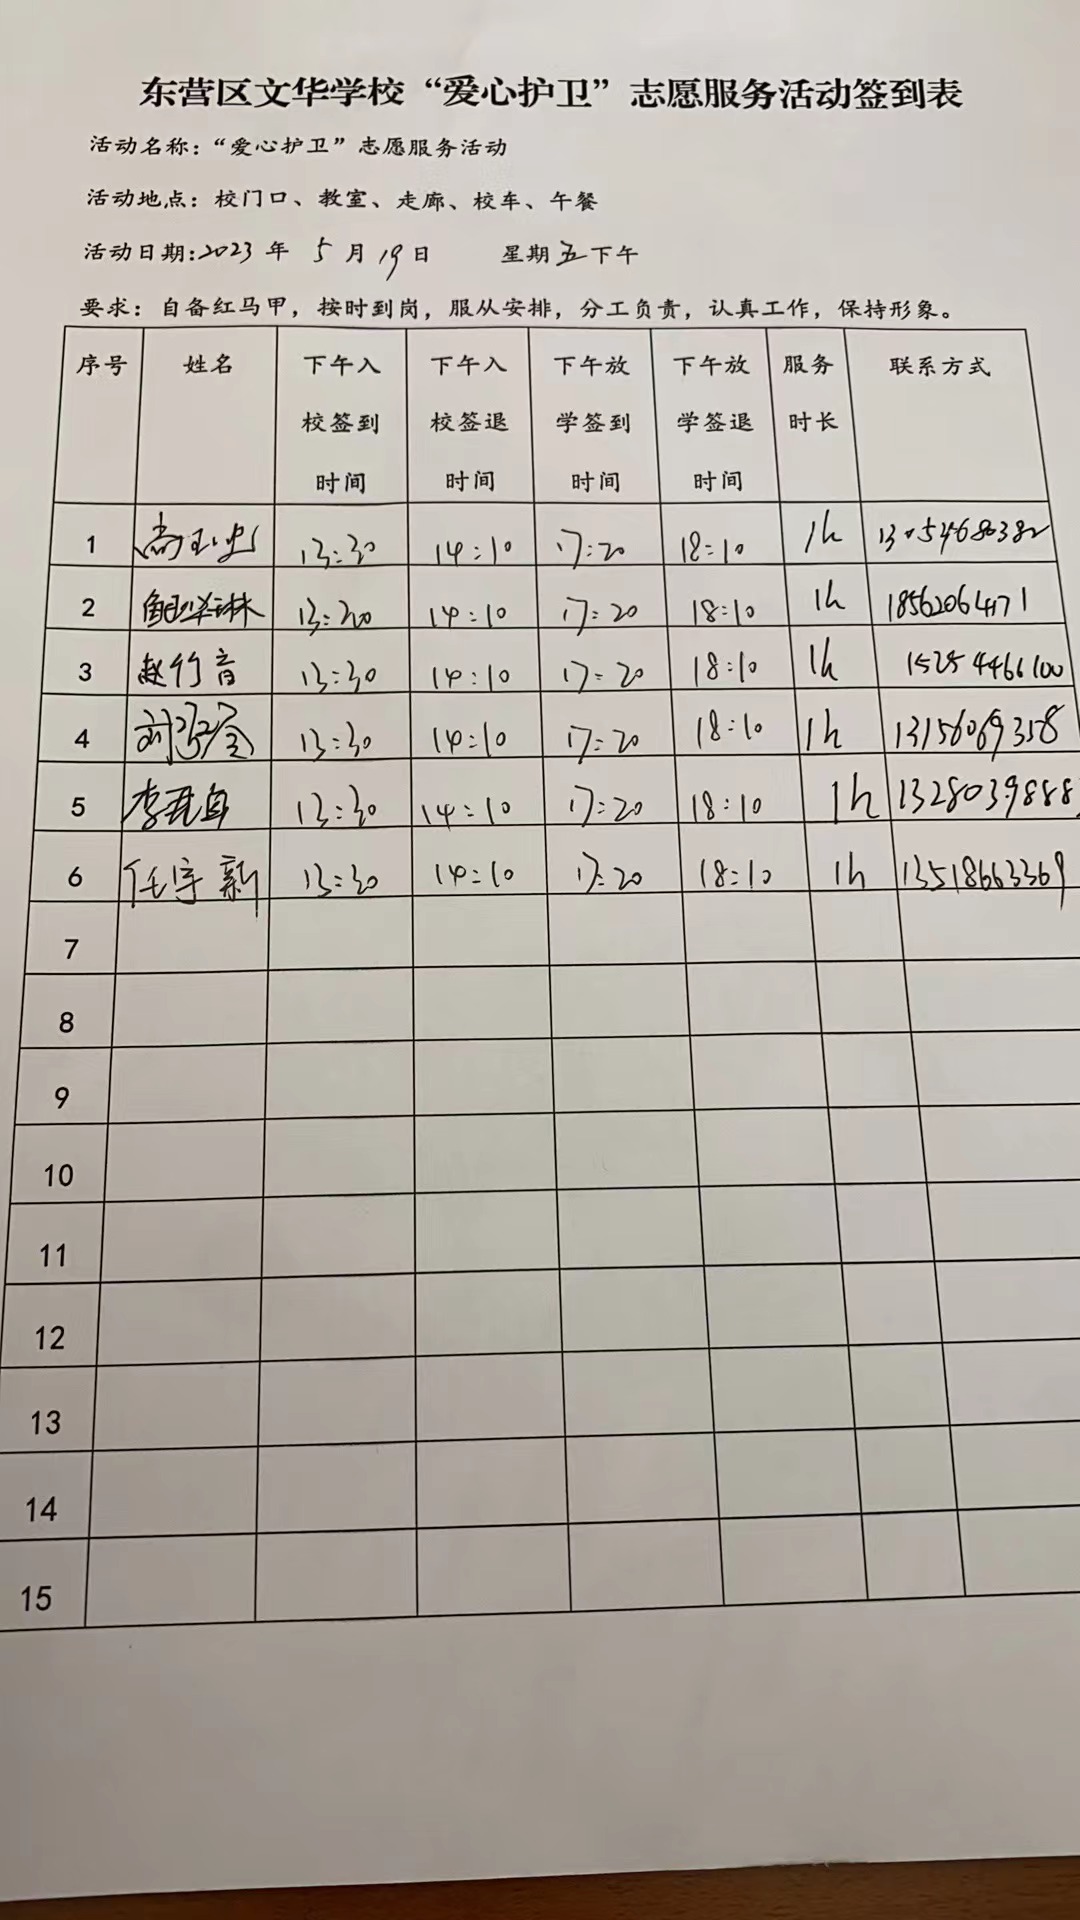 东营区文华学校“爱心护卫”志愿服务活动签到表
活动名称：“爱心护卫”志愿服务活动
活动地点：校门口、教室、走廊、校车、午餐
活动日期:2023 年 5 月 19 日 星期五下午
要求：自备红马甲，按时到岗，服从安排，分工负责，认真工作，保持形象。
序号 姓名 下午入校签到时间 下午入校签退时间 下午放学签到时间 下午放学签退时间 服务时长 联系方式
1 13:30 14:10 17:20 18:10 1h 13054680382
2 13:30 14:10 17:20 18:10 1h 18562064171
3 赵竹音 13:30 14:10 17:20 18:10 1h 15254466100
4 13:30 14:10 17:20 18:10 1h 13156069358
5 13:30 14:10 17:20 18:10 1h 1328039888
6 任宇新 13:30 14:10 17:20 18:10 1h 13518663369
7
8
9
10
11
12
13
14
15